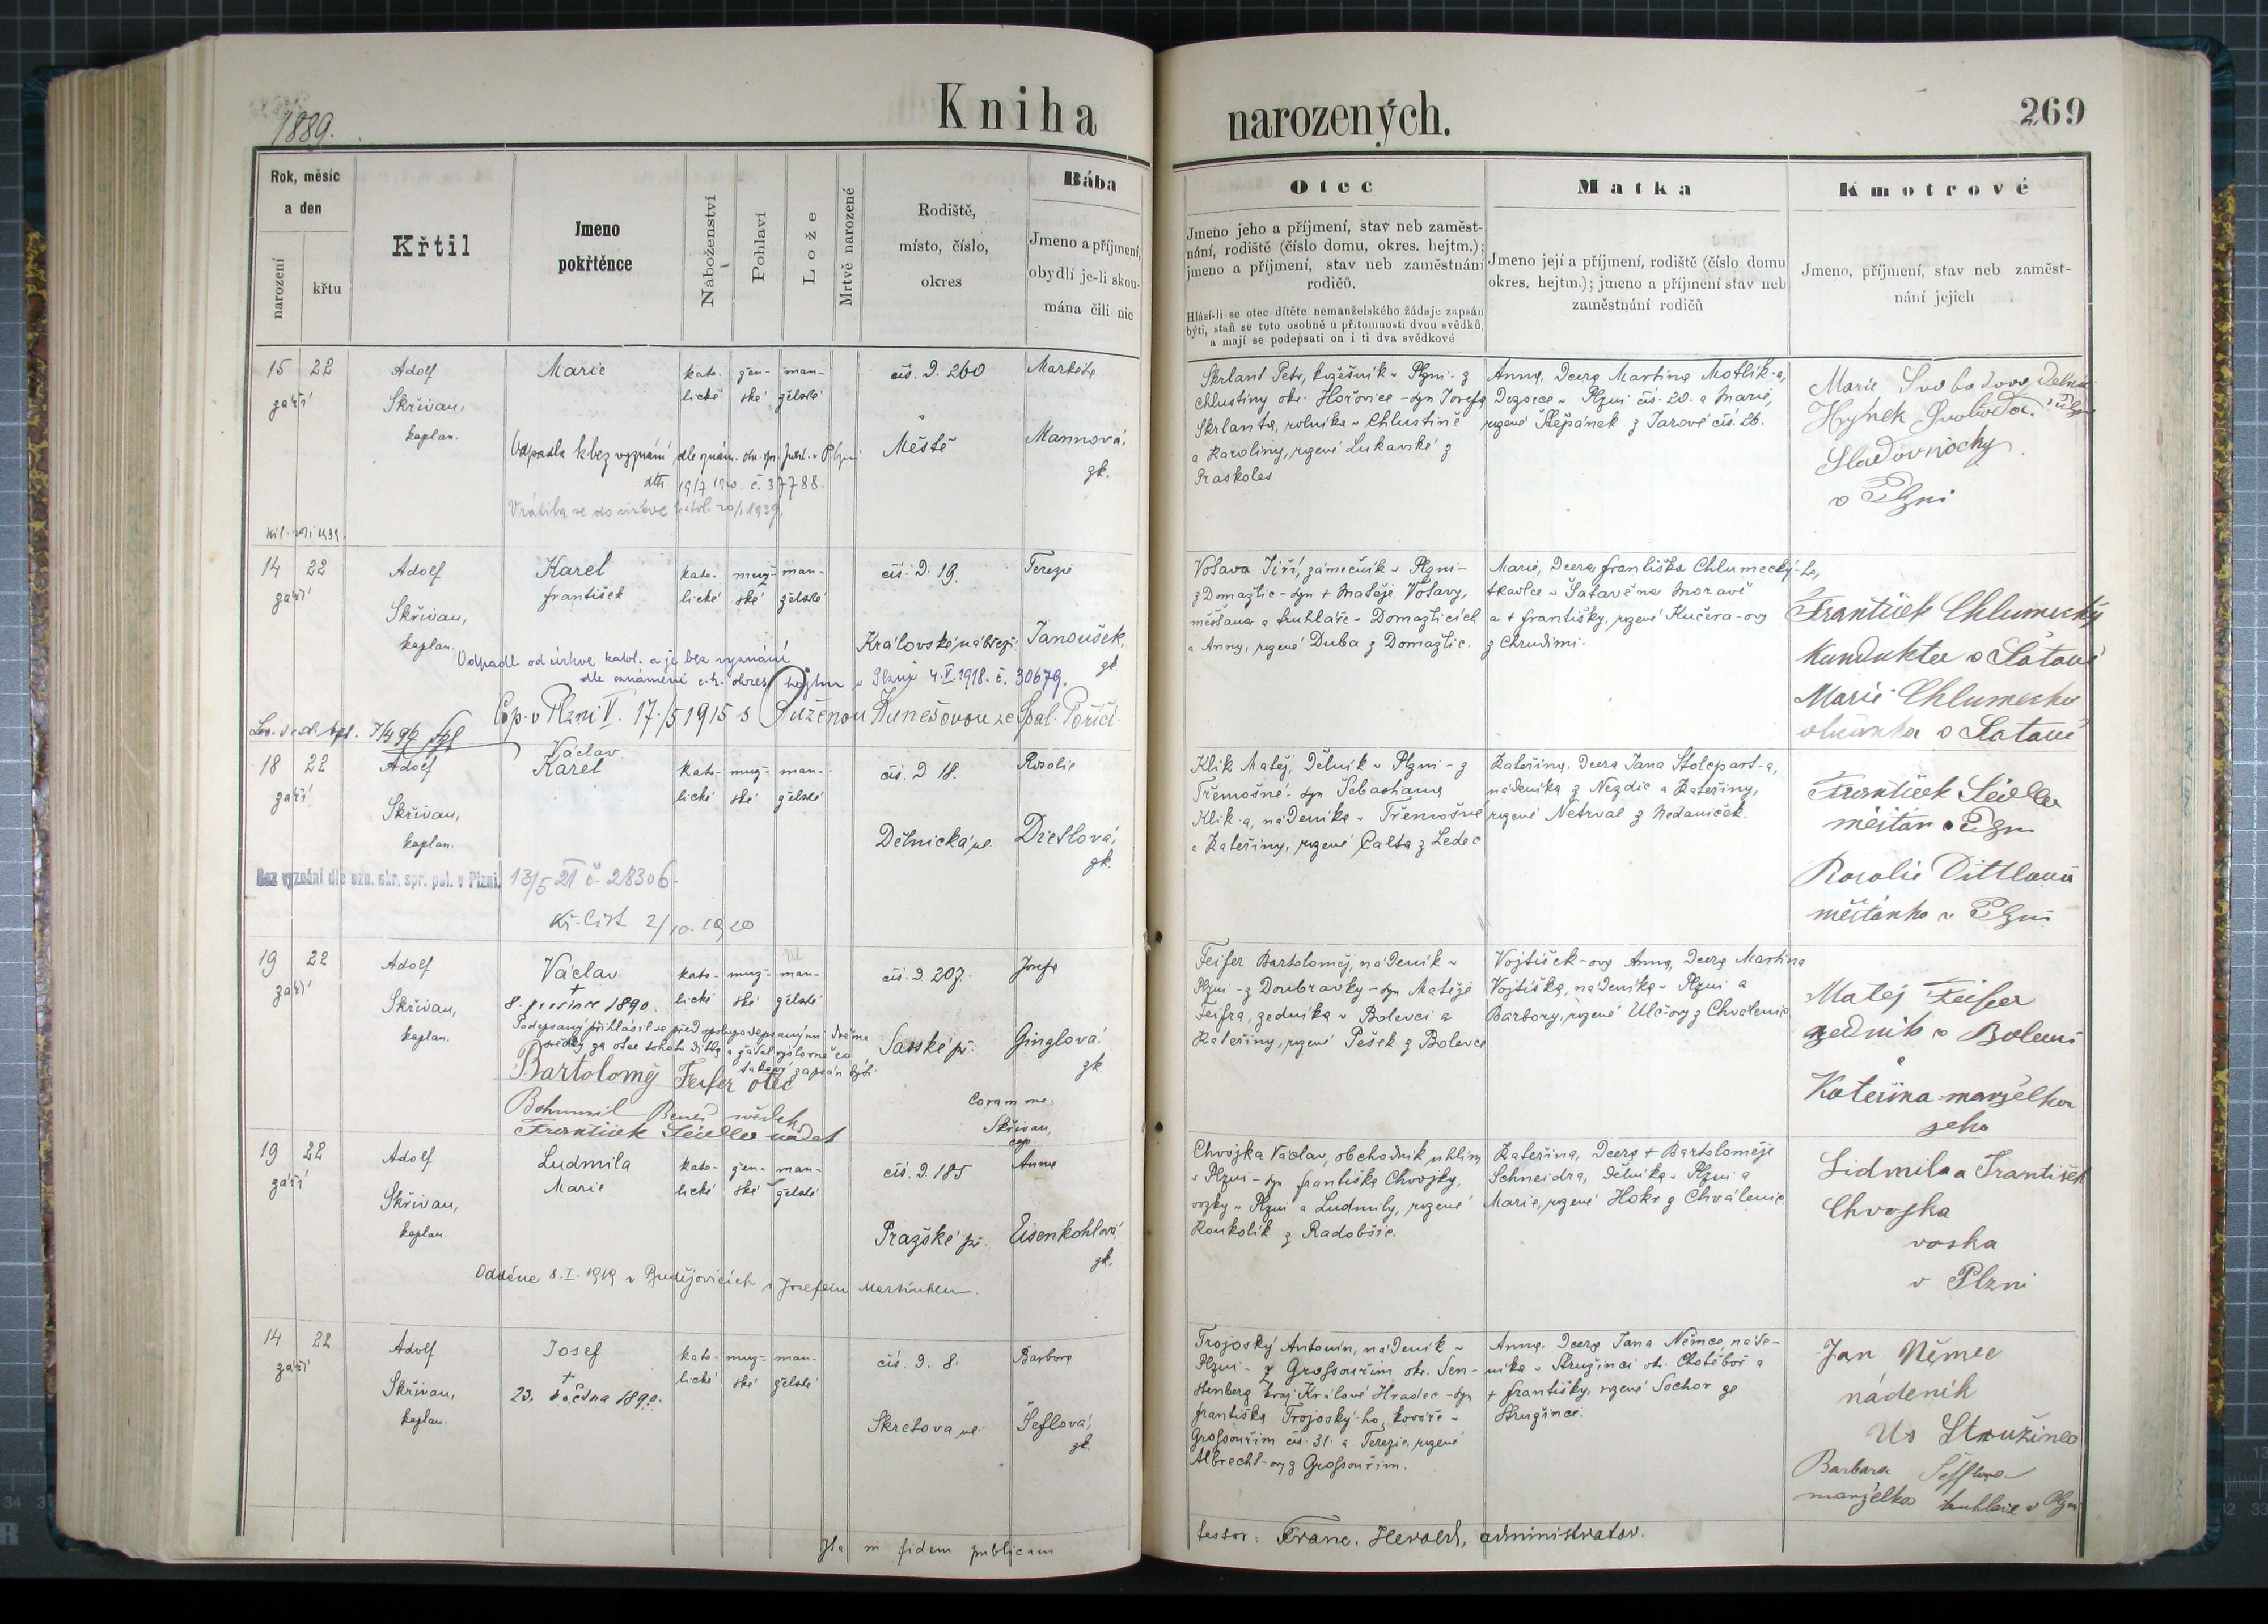 1889.
Kniha
narozených.
269
Rok, měsíc
a den
narození
křtu
Křtil
Jmeno
pokřtěnce
Náboženství
Pohlaví
Lože
Mrtvě narozené
Rodiště,
místo, číslo,
okres
Bába
Jmeno a příjmení,
obydlí je-li skou-
mána čili nic
Otec
Jmeno jeho a příjmení, stav neb zaměst-
nání, rodiště (číslo domu, okres. hejtm.);
jmeno a příjmení, stav neb zaměstnání
rodičů.
Hlásí-li se otec dítěte nemanželského žádaje zapsán
býti, staň se toto osobně u přítomnosti dvou svědků,
a mají se podepsati on i ti dva svědkové
Matka
Jmeno její a příjmení, rodiště (číslo domu
okres. hejtm.); jmeno a příjmení stav neb
zaměstnání rodičů
Kmotrové
Jmeno, příjmení, stav neb zaměst-
nání jejich
15 22
září
Adolf
Skřivan,
kaplan.
Marie
kato- žen- man-
lické ské želské
čís. d. 260
Městě
Markéta
Mannová,
zk.
Odpadla k bez vyznání dle
19/7 č. 37788.
Vrátila se do církve katol. 1939.
Skrlant Petr, kožešník v Plzni - z
Chlustiny okr. Hořovice - syn Josefa
Skrlanta, rolníka v Chlustině
a Karoliny, rozené Lukavské z
Praskoles
Anna, dcera Martina Motlík-a,
Dozorce v Plzni čís. 20. a Marie,
rozené Štěpánek z Jarové čís. 26.
Marie Svobodova
Hynek Svoboda
v Plzni
14 22
září
Adolf
Skřivan,
kaplan.
Karel
František
kato- muž- man-
lické ské želské
čís. d. 19.
Královské nábřeží
Terezie
Janoušek,
zk.
Odpadl od církve katol. a je bez vyznání
dle oznámení c.k. okres. hejtm. v Plzni 4.V.1918. č. 30679.
Cop. v Plzni V. 17./5 1915 s Růženou Kunešovou ze Spál. Poříčí.
Vošava Jiří, zámečník v Plzni -
z Domažlic - syn + Matěje Vošavy,
měšťana a truhláře v Domažlicích
a Anny, rozené Duba z Domažlic.
Marie, dcera Františka Chlumecký-ho,
tkadlce v Šatavě na Moravě
a + Františky, rozené Kučera-ovy
z Chrudimi.
František Chlumecký
Marie Chlumecka
18 22
září
Adolf
Skřivan,
kaplan.
Václav
Karel
kato- muž- man-
lické ské želské
čís. d 18.
Dělnická ul.
Rosalie
Dietlová,
zk.
Bez vyznání dle ozn. okr. spr. pol. v Plzni. 13/5 21 č. 28306.
Kř. list 2/10 1920
Klik Matěj, dělník v Plzni - z
Třemošné - syn Šebastiana
Klik-a, nádeníka v Třemošné
a Kateřiny, rozené Calta z Ledec
Kateřina, dcera Jana Stolepart-a,
nádeníka z Nezdic a Kateřiny,
rozené Netrval z Nedaniček.
František Seidler
měšťan v Plzni
Rosalie Dittlová
měšťanka v Plzni
19 22
září
Adolf
Skřivan,
kaplan.
Václav
+
8. prosince 1890.
kato- muž- man-
lické ské želské
ne
čís. d 207.
Saské př.
Josefa
Ginglová,
zk.
Podepsaný přihlásil se před spolupodepsanými dvěma
svědky za otce tohoto dítka a žádal výslovně co
takový zapsán býti.
Bartoloměj Feifer otec
Bohumil Beneš svědek
František Seidler svědek
Coram me:
Skřivan,
cap.
Feifer Bartoloměj, nádeník v
Plzni - z Doubravky - syn Matěje
Feifra, zedníka v Bolevci a
Kateřiny, rozené Pešek z Bolevce
Vojtíšek-ova Anna, dcera Martina
Vojtíška, nádeníka v Plzni a
Barbory, rozené Ulč-ovy z Chválenic
Matěj Feifer
zedník v Bolevci
a
Kateřina manželka
jeho
19 22
září
Adolf
Skřivan,
kaplan.
Ludmila
Marie
kato- žen- man-
lické ské želské
čís. d. 185
Pražské př.
Anna
Eisenkohlová,
zk.
Oddána 8.I.1919 v Budějovicích s Josefem Martínkem.
Chvojka Václav, obchodník uhlím
v Plzni - syn Františka Chvojky,
vozky v Plzni a Ludmily, rozené
Koukolík z Radobšic.
Kateřina, dcera + Bartoloměje
Schneidra, dělníka v Plzni a
Marie, rozené Hokr z Chválenic.
Lidmila a František
Chvojka
voska
v Plzni
14 22
září
Adolf
Skřivan,
kaplan.
Josef
+
23. 1890.
kato- muž- man-
lické ské želské
čís. d. 8.
Skretova ul.
Barbora
Šeflová,
zk.
Trojoský Antonín, nádeník v
Plzni - z Grossouřim okr. Sen-
stenberg kraj Králové Hradec - syn
Františka Trojoský-ho, kováře v
Grossouřim čís. 31. a Terezie, rozené
Albrecht-ovy z Grossouřim.
Anna, dcera Jana Němce, náde-
níka v Stružinci ok. Chotěboř a
+ Františky, rozené Sochor ze
Stružince.
Jan Němec
nádeník
Us Stružinec
Barbara Šefflova
manželka truhláře v Plzni
Ita in fidem publicam
testor: Franc. Herold, administrator.